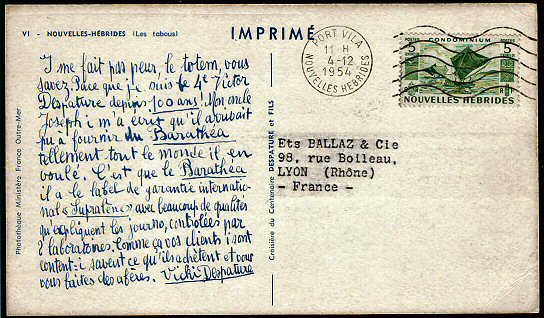 VI - NOUVELLES-HÉBRIDES (Les tabous)
IMPRIMÉ
PORT VILA
11 H
4-12
1954
NOUVELLES HEBRIDES
POSTES
CONDOMINIUM
POSTES
5
5
NOUVELLES HÉBRIDES
I me fait pas peur le totem, vous
savez. Pace que je suis le 4e Victor
Despature depuis 100 ans. Mon oncle
Joseph i m'a écrit qu'il avouait
pu à fournir du Barathéa
tellement tout le monde il en
voulé. C'est que le Barathéa
il a le label de garantie internatio-
nal « Supratenc » avec beaucoup de qualités
qu'expliquent les journo, contrôlées par
2 laboratoires. Comme ça vos clients i sont
content: i savent ce qu'ils achètent et vous
vous faites des afères. Vicki Despature
Photothèque Ministère France Outre-Mer
Croisière du Centenaire DESPATURE et FILS
Ets BALLAZ & Cie
98, rue Boileau,
LYON (Rhône)
- France -